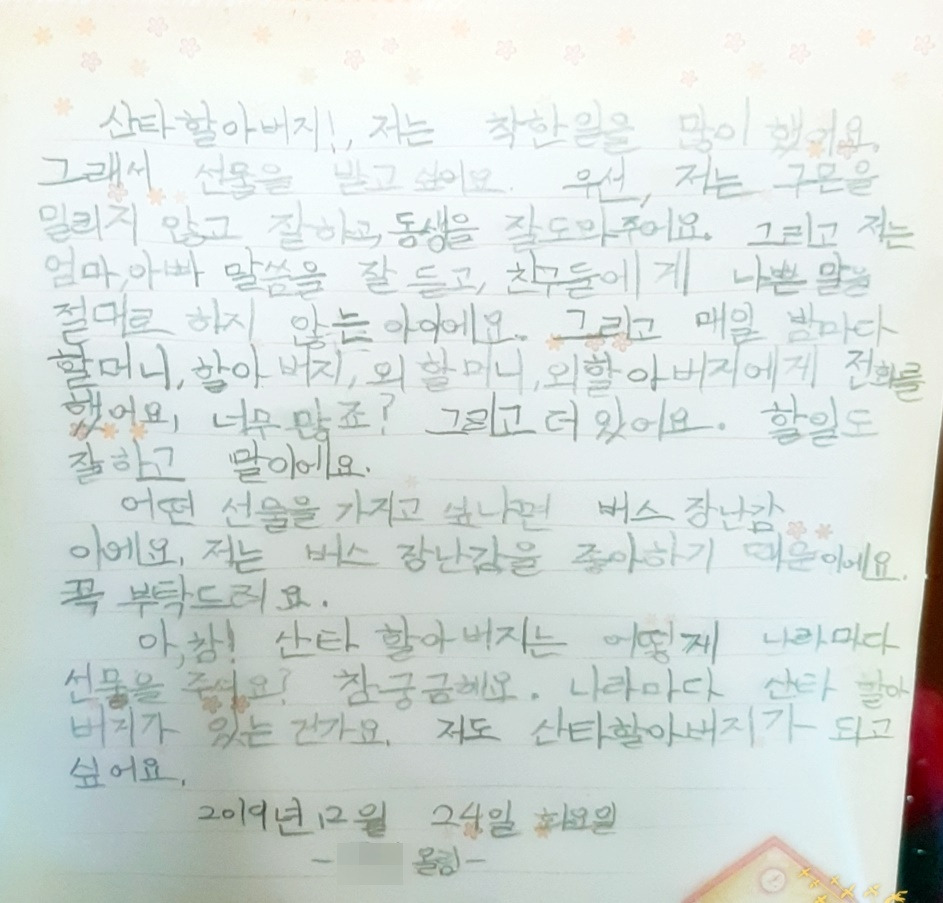 산타할아버지!, 저는 착한일을 많이 했어요.
그래서 선물을 받고 싶어요. 우선, 저는 구몬을
밀리지 않고 잘하고, 동생을 잘도와주어요. 그리고 저는
엄마, 아빠 말씀을 잘 듣고, 친구들에게 나쁜 말을
절대로 하지 않는 아이에요. 그리고 매일 밤마다
할머니, 할아버지, 외할머니, 외할아버지에게 전화를
했어요, 너무 많죠? 그리고 더 있어요. 할일도
잘하고 말이에요.
어떤 선물을 가지고 싶냐면 버스 장난감
이에요, 저는 버스 장난감을 좋아하기 때문이에요.
꼭 부탁드려요.
아, 참! 산타 할아버지는 어떻게 나라마다
선물을 주세요? 참 궁금해요. 나라마다 산타 할아
버지가 있는 건가요. 저도 산타할아버지가 되고
싶어요.
2019년 12월 24일 화요일
- 올림 -